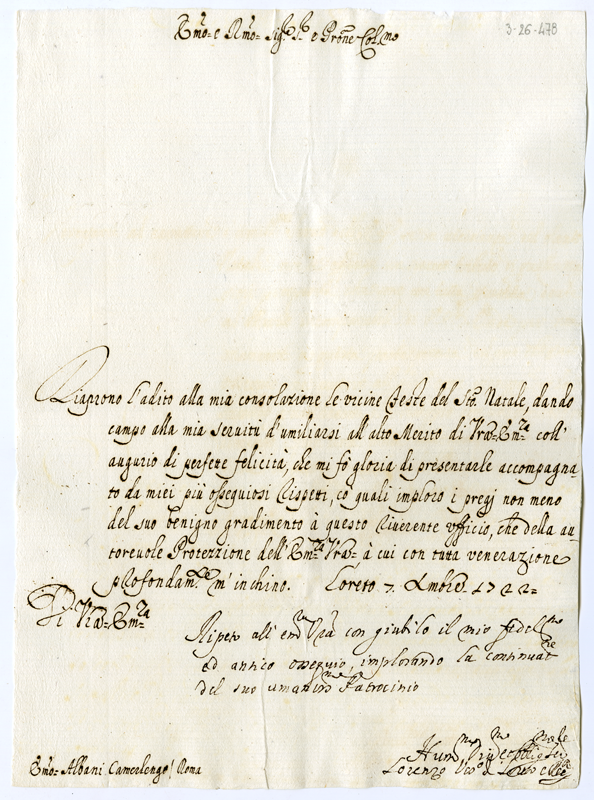 3-26-478
Emo: e Rmo: Sig.r P.re e Prone Colmo
Riaprono l'adito alla mia consolazione le vicine Feste del Sto. Natale, dando
campo alla mia seruitù d'umiliarsi all'alto Merito di Vra: Em:za coll'
augurio di perfette felicità, che mi fò gloria di presentarle accompagna=
to da miei più ossequiosi Rispetti, co quali imploro i pregj non meno
del suo benigno gradimento à questo Riuerente vfficio, che della au=
toreuole Protezzione dell'Em:za Vra: à cui con tutta venerazione
profondam.te m'inchino. Loreto 7. Xmbre. 1722=
Di Vra: Em:za
Ripeto all' em:za Vra con giubilo il mio fidel.mo
ed antico ossequio, implorando la continuat.ne
del suo umaniss.mo Patrocinio
Hum.mo Diu.mo
Lorenzo
Emo: Albani Camerlengo / Roma